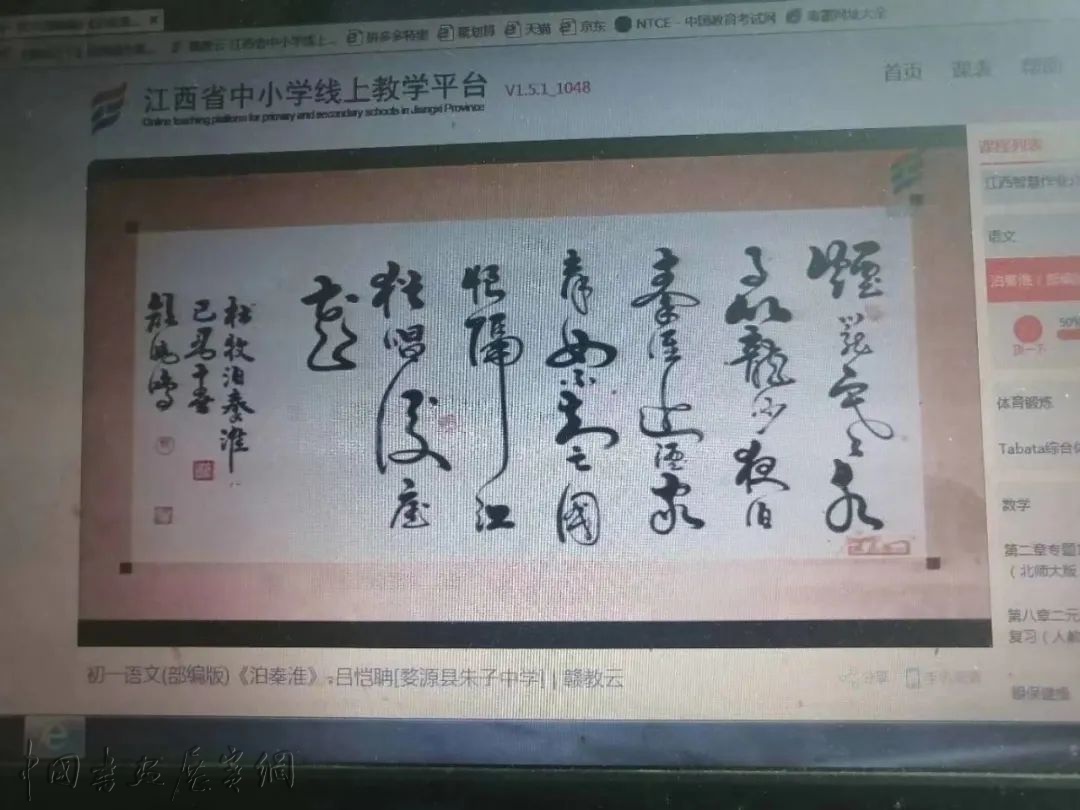 拼多多特卖 聚划算 天猫 京东 NTCE - 中国教育考试网
江西省中小学线上教学平台 V1.5.1_1048
Online teaching platform for primary and secondary schools in Jiangxi Province
首页 课表 帮助
煙籠寒水
月籠沙夜泊
秦淮近酒家
商女不知亡國
恨隔江
猶唱後庭
花
杜牧泊秦淮
课程列表
江西智慧作业
语文
泊秦淮（部编
50%
顶一下
体育锻炼
Tabata综合
数学
第二章专题
（北师大版
第八章二元
复习（人教
眼保健操
初一语文(部编版)《泊秦淮》-吕恺聃[婺源县朱子中学] | 赣教云
分享
中国书画展赛網